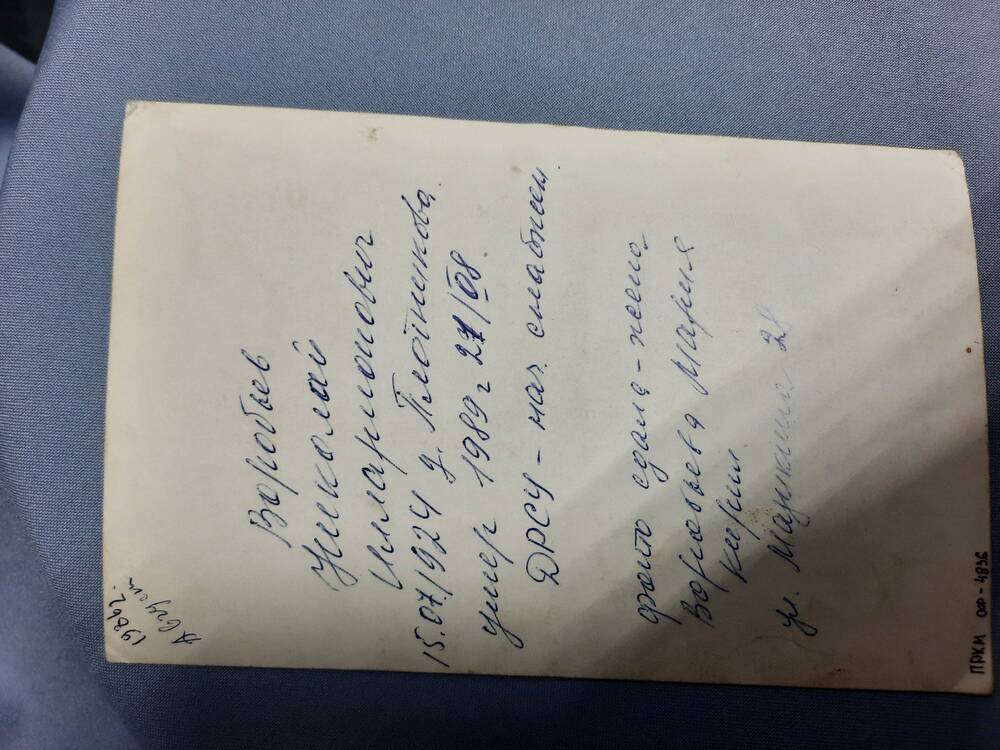 1986г.
Август
Воробьев
Николай
Илларионович
15.07.1924 д. Плотникова.
умер 1989г /08.
ДРСУ - нач. снабжен.
фото сдала - жена
Воробьева Мария
Кирил.
ул. 28
ПРКМ ОФ-4836